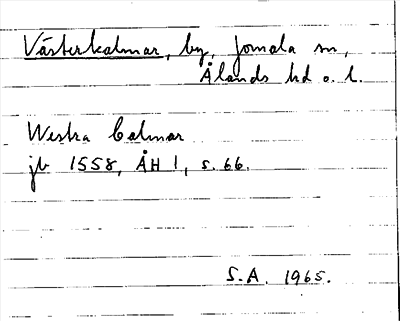 Västerkalmar, by, Jomala sn,
Ålands hd o. l.
Westra Calmar
jb 1558, ÅH 1, s. 66.
S.A. 1965.